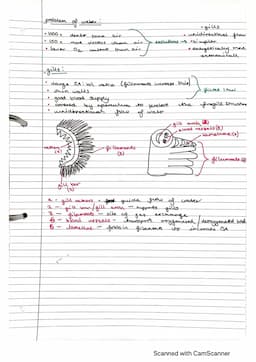 problem of water:
• 100x denser than air
• 100x more viscous than air
• lower O₂ content than air
solutions →
• gills
• unidirectional flow
• simpler
• energetically more economical
gills:
• large SA:vol ratio (filaments increase this)
• thin walls
• good blood supply
ficks law
• covered by operculum to protect the fragile structure
• unidirectional flow of water
rakers (1)
filaments (3)
gill bar (2)
gill arch (2)
blood vessels (4)
lamellae (5)
filaments (3)
1 - gill rakers - guide flow of water
2 - gill bar/gill arch - supports gills
3 - filaments - site of gas exchange
4 - blood vessels - transport oxygenated/deoxygenated blood
5 - lamellae - folds in filament to increase SA
Scanned with CamScanner